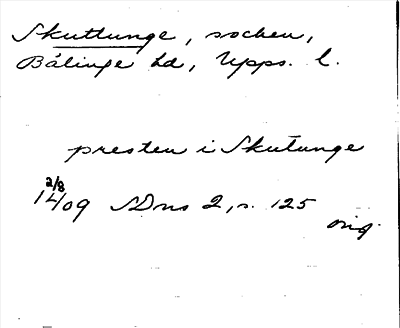 Skuttunge, socken,
Bälinge hd, Upps. l.
presten i Skutunge
2/8
1409 SDns 2, s. 125
orig.